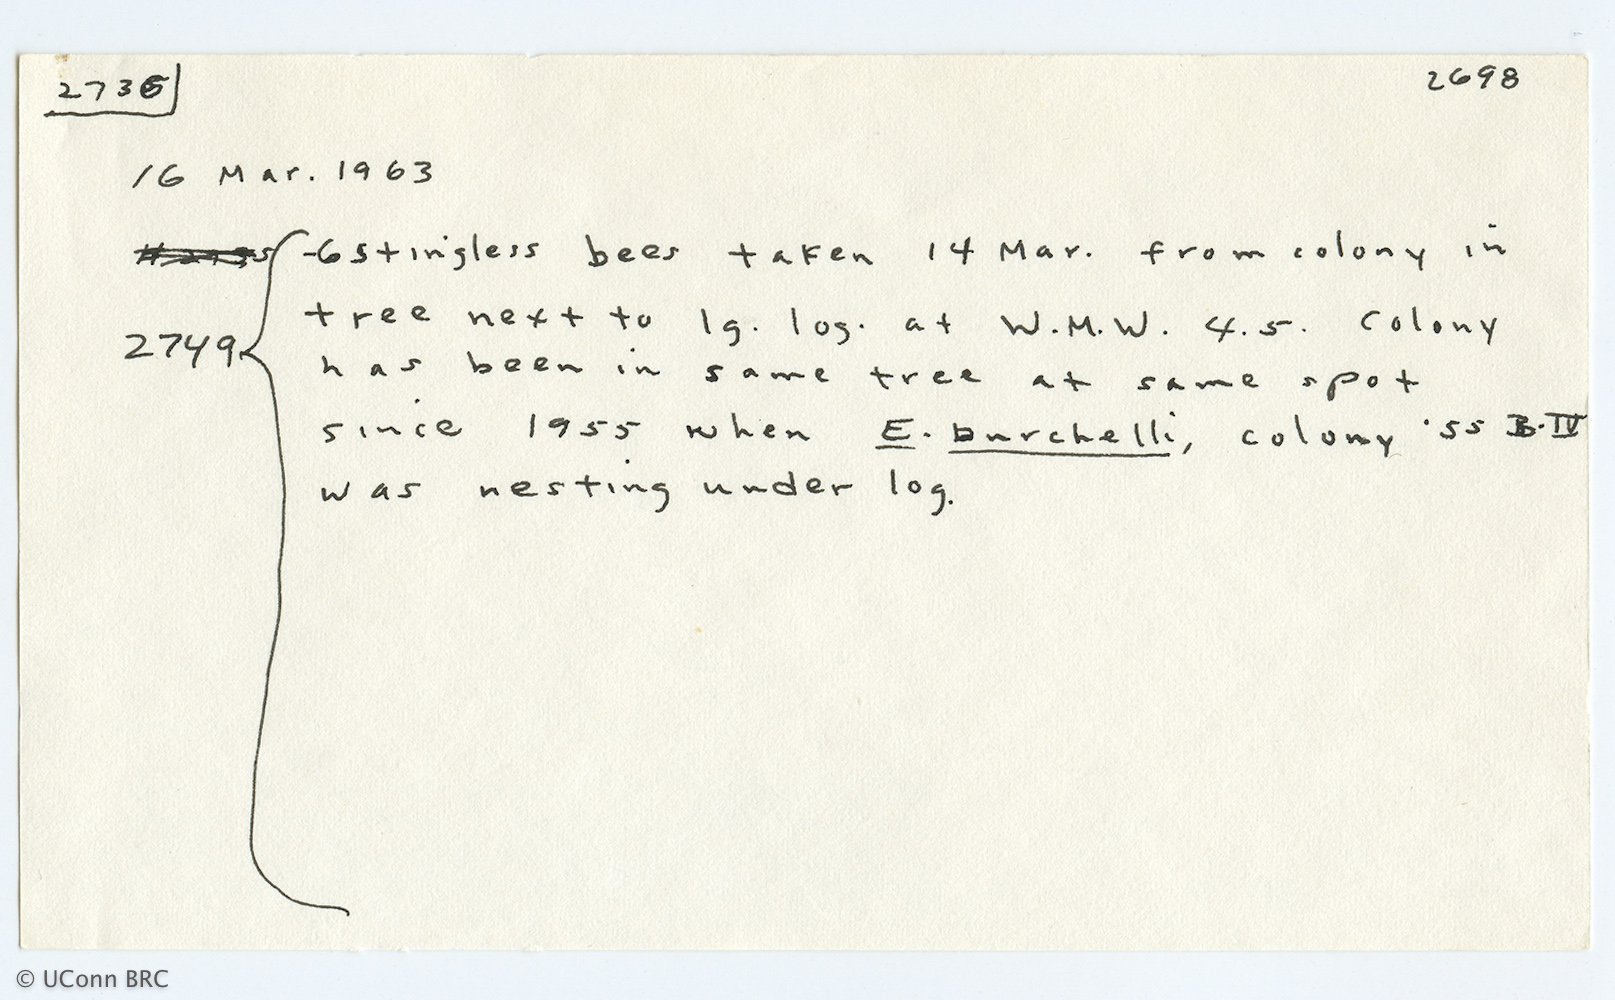 2736 2698
16 Mar. 1963
-6 stingless bees taken 14 Mar. from colony in
tree next to lg. log. at W.M.W. 4.5. Colony
2749
has been in same tree at same spot
since 1955 when E. burchelli, colony '55 B-IV
was nesting under log.
© UConn BRC